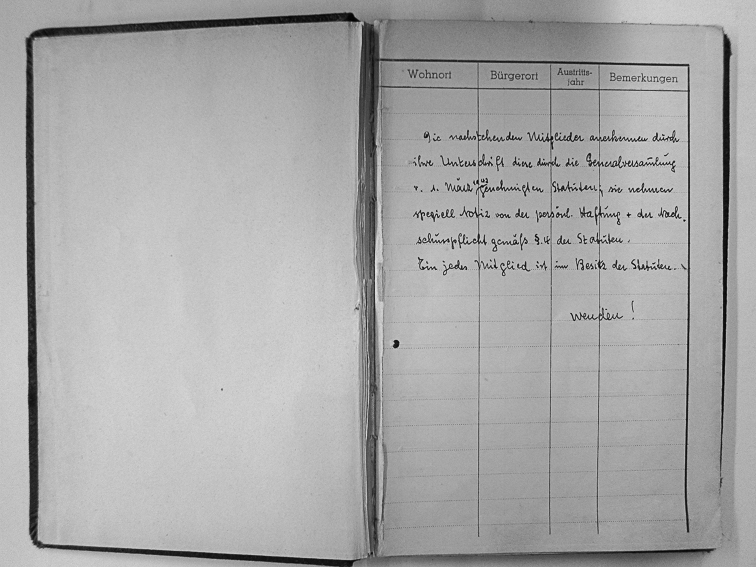 Wohnort Bürgerort Austritts-jahr Bemerkungen
Die nachstehenden Mitglieder anerkennen durch
ihre Unterschrift diese durch die Generalversam̄lung
v. 1. März genehmigten Statuten; sie nehmen
speziell Notiz von der persönl. Haftung + der Nach-
schusspflicht gemäss §.4 der Statuten.
Ein jedes Mitglied ist im Besitz der Statuten.
wenden!